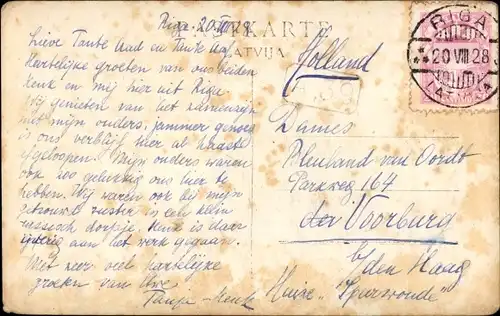 Riga. 20-VIII-'28
PASTKARTE
LATVIJA
Lieve Tante Aad en Tante
Hartelijke groeten van ons beiden
Henk en mij hier uit Riga
Wij genieten van het samenzijn
met mijn ouders, jammer genoeg
is ons verblijf hier al haast
afgeloopen. Mijn ouders waren
ook zoo gelukkig ons hier te
hebben. Wij waren ook bij mijn
getrouwde zuster in een klein
russisch dorpje. Henk is daar
ijverig aan het werk gegaan.
Met zeer veel hartelijke
groeten van Uwe
Henk
Holland
RIGA
20 VIII 28
LATVIJA
Dames
Bleuland van Oordt
Parkweg 164
den Voorburg
b/den Haag
Huize „Spurwoude”